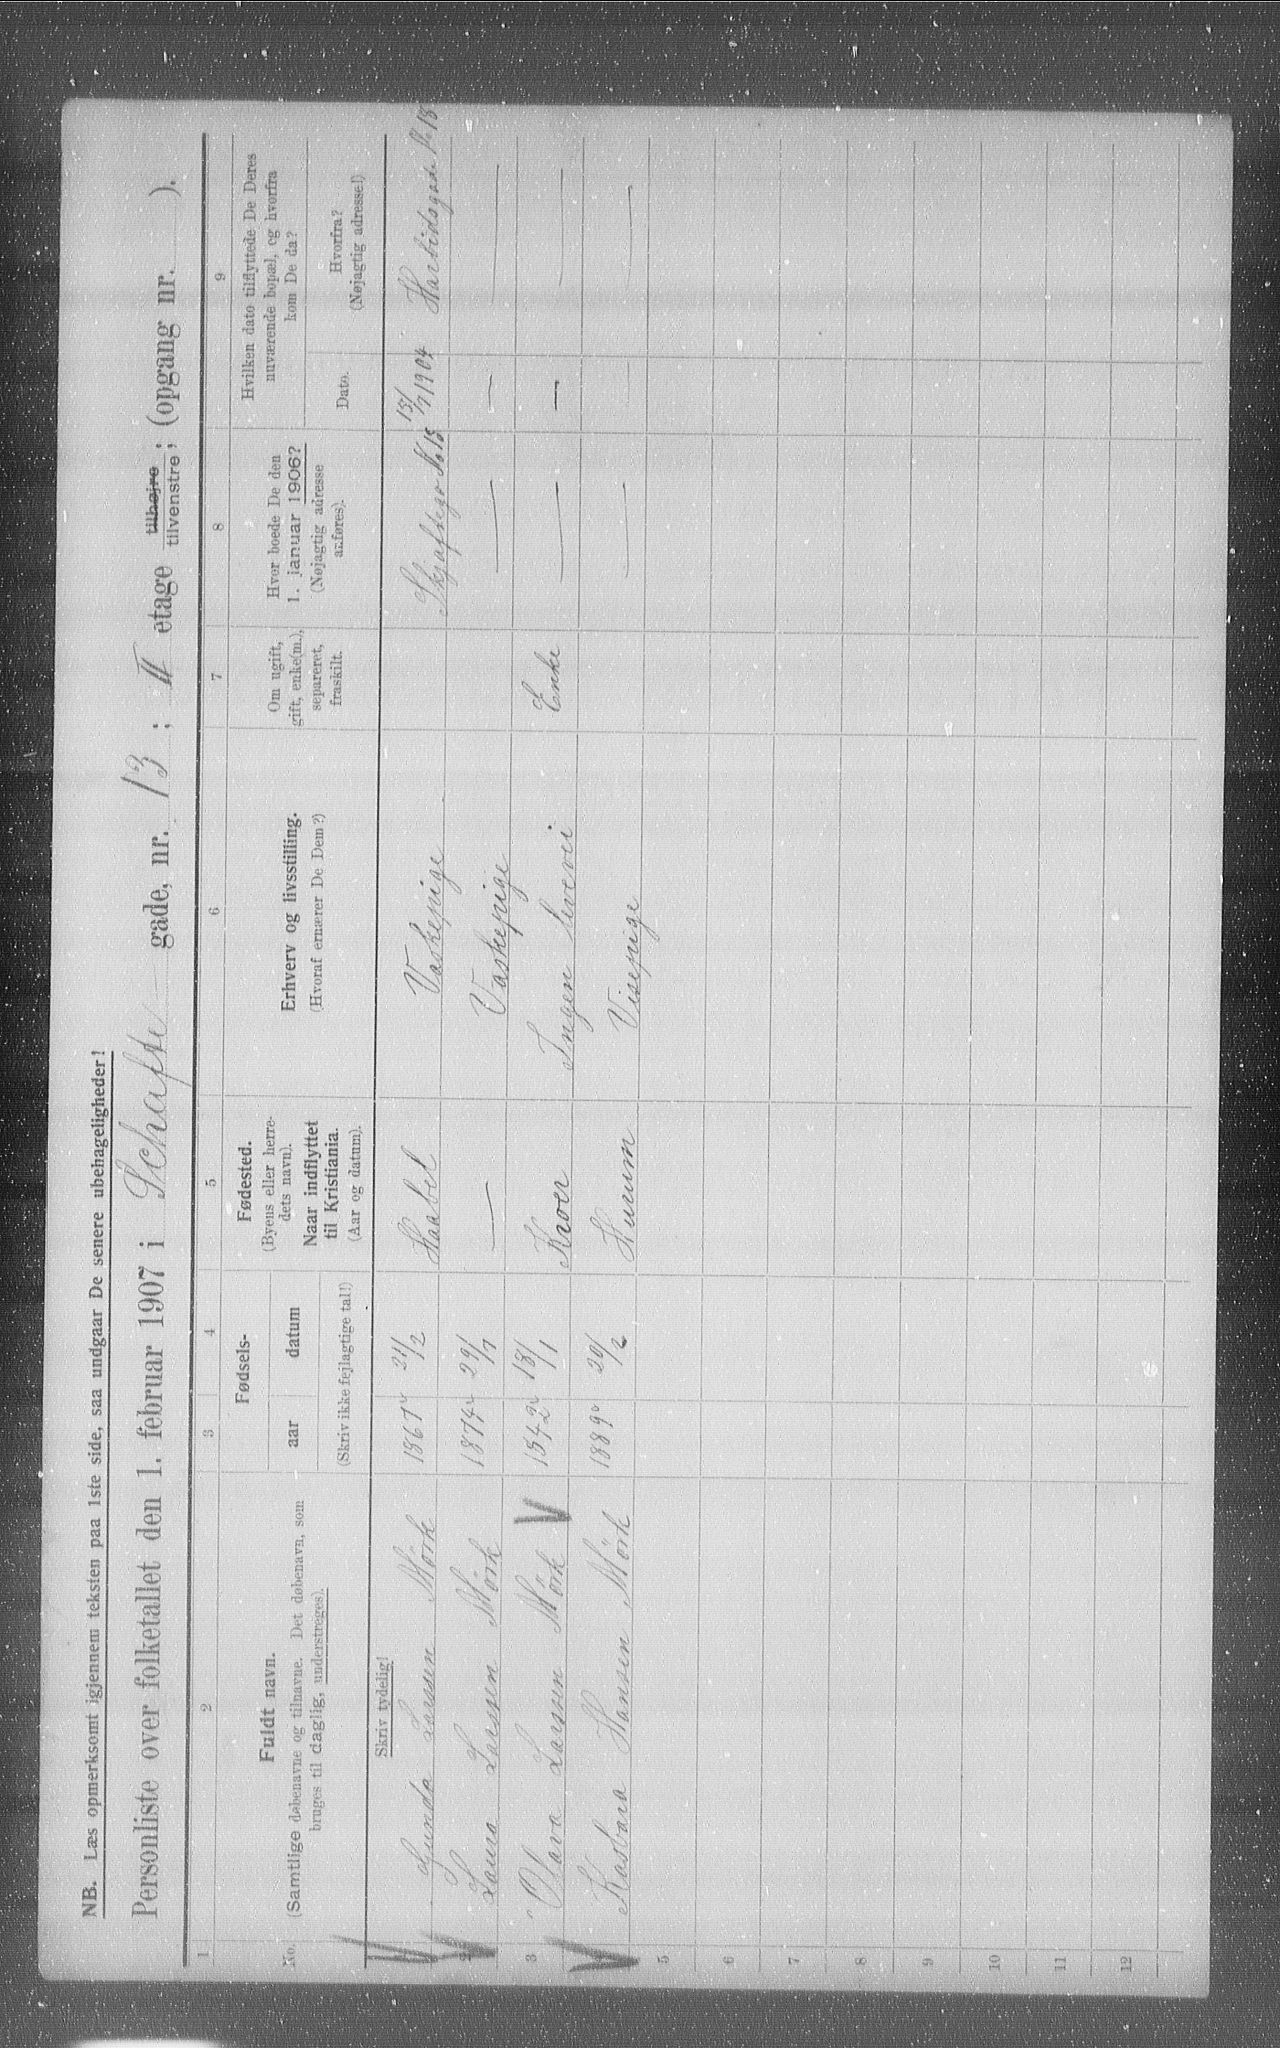 NB. Læs opmerksomt igjennem teksten paa 1ste side, saa undgaar De senere ubehageligheder!
Personliste over folketallet den 1. februar 1907 i Schafte gade, nr. 13; II etage tilhøjre tilvenstre; (opgang nr. ).
1 2 3 4 5 6 7 8 9
No.
Fuldt navn.
(Samtlige døbenavne og tilnavne. Det døbenavn, som
bruges til daglig, understreges).
Fødsels-
aar datum
(Skriv ikke fejlagtige tal!)
Fødested.
(Byens eller herre-
dets navn).
Naar indflyttet
til Kristiania.
(Aar og datum).
Erhverv og livsstilling.
(Hvoraf ernærer De Dem?)
Om ugift,
gift, enke(m.),
separeret,
fraskilt.
Hvor boede De den
1. januar 1906?
(Nøjagtig adresse
anføres).
Hvilken dato tilflyttede De Deres
nuværende bopæl, og hvorfra
kom De da?
Dato.
Hvorfra?
(Nøjagtig adresse!)
Skriv tydelig!
Larsen Mörk 1867 21/2 Haabøl Vaskepige No 13 1904 No 18
2 Laura Larssen Mörk 1874 29/7 — Vaskepige — — —
3 Olava Larssen Mörk 1842 18/1 Kroer Ingen Enke — — —
Hansen Mörk 1889 20/2 Hurum Visepige — —
5
6
7
8
9
10
11
12